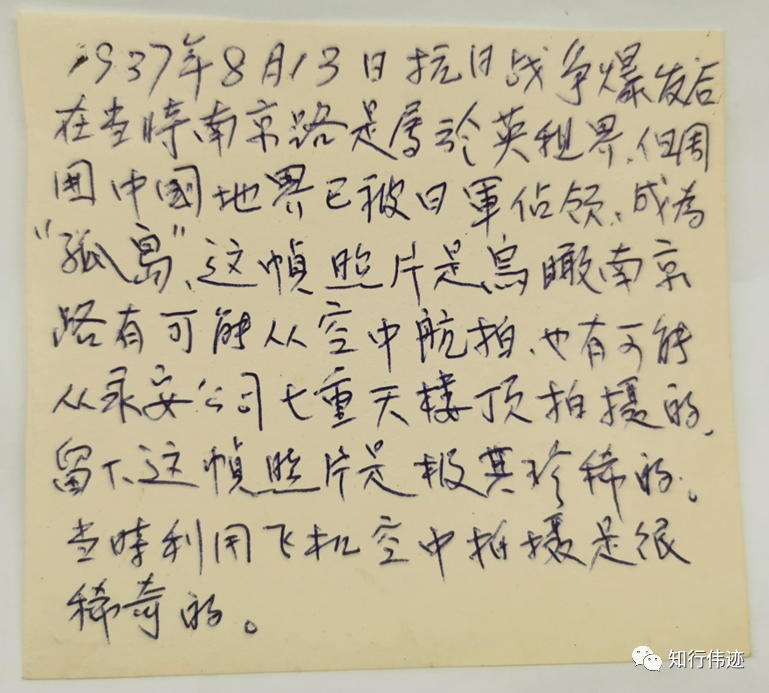 1937年8月13日抗日战争爆发后
在当时南京路是属於英租界、但周
围中国地界已被日軍佔领、成为
“孤岛”、这幀照片是鸟瞰南京
路有可能从空中航拍、也有可能
从永安公司七重天楼顶拍摄的、
留下这幀照片是极其珍稀的。
当時利用飞机空中拍摄是很
稀奇的。
知行伟迹